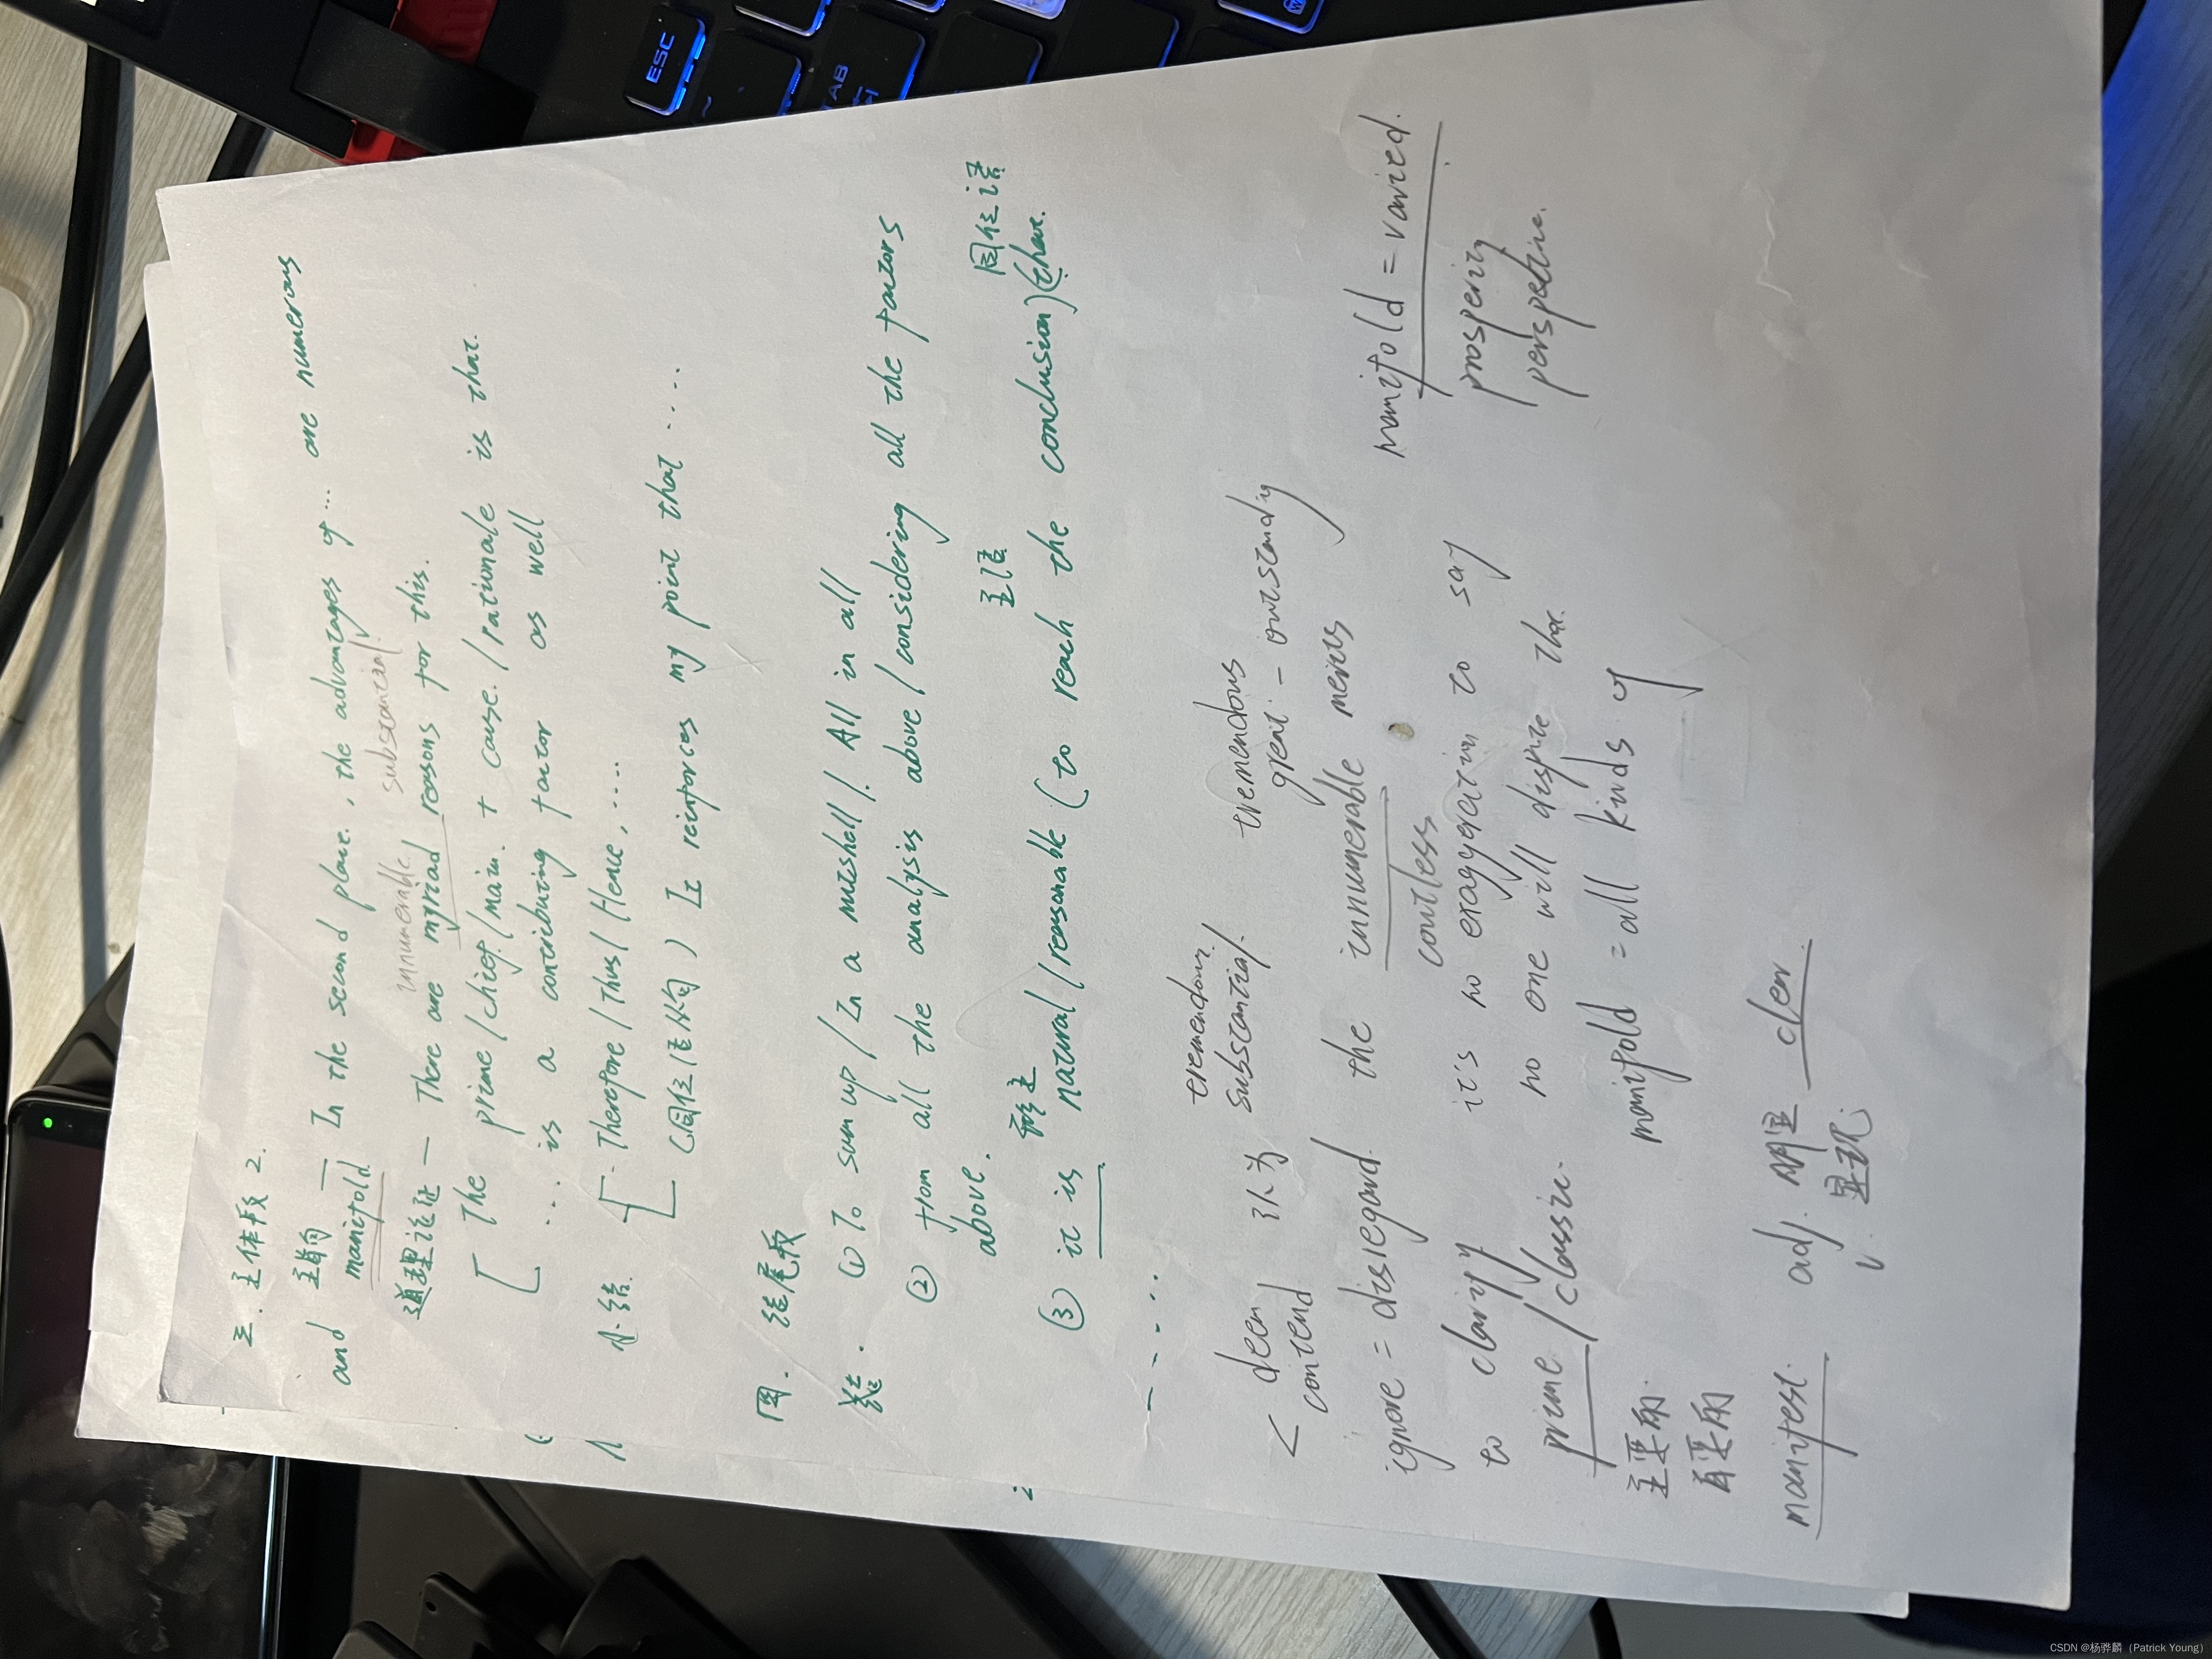 三. 主体段 2.
主旨句 — In the second place, the advantages of ... are numerous
and manifold
innumerable substantial
道理论证 — There are myriad reasons for this.
The prime / chief / main. + cause. / rationale is that.
... is a contributing factor as well
小结. Therefore / Thus / Hence, ....
(同位语从句) It reinforces my point that ....
四. 结尾段
总结. ① To sum up / In a nutshell / All in all
② from all the analysis above / considering all the factors
above.
形主 主语 同位语
③ it is natural / reasonable (to reach the conclusion) (that.
....
tremendous tremendous
< deem 认为 substantial. great - outstandiy
contend
ignore = disregard. the innumerable merits manifold = varied.
coutless
to clarify it's no exaggeration to say prosperity
prime / classic. no one will dispute that. perspective.
主要的. manifold = all kinds of
首要的
manifest. adj. 明显 clear
v. 显现.
ESC
TAB
CSDN @杨骅麟（Patrick Young）